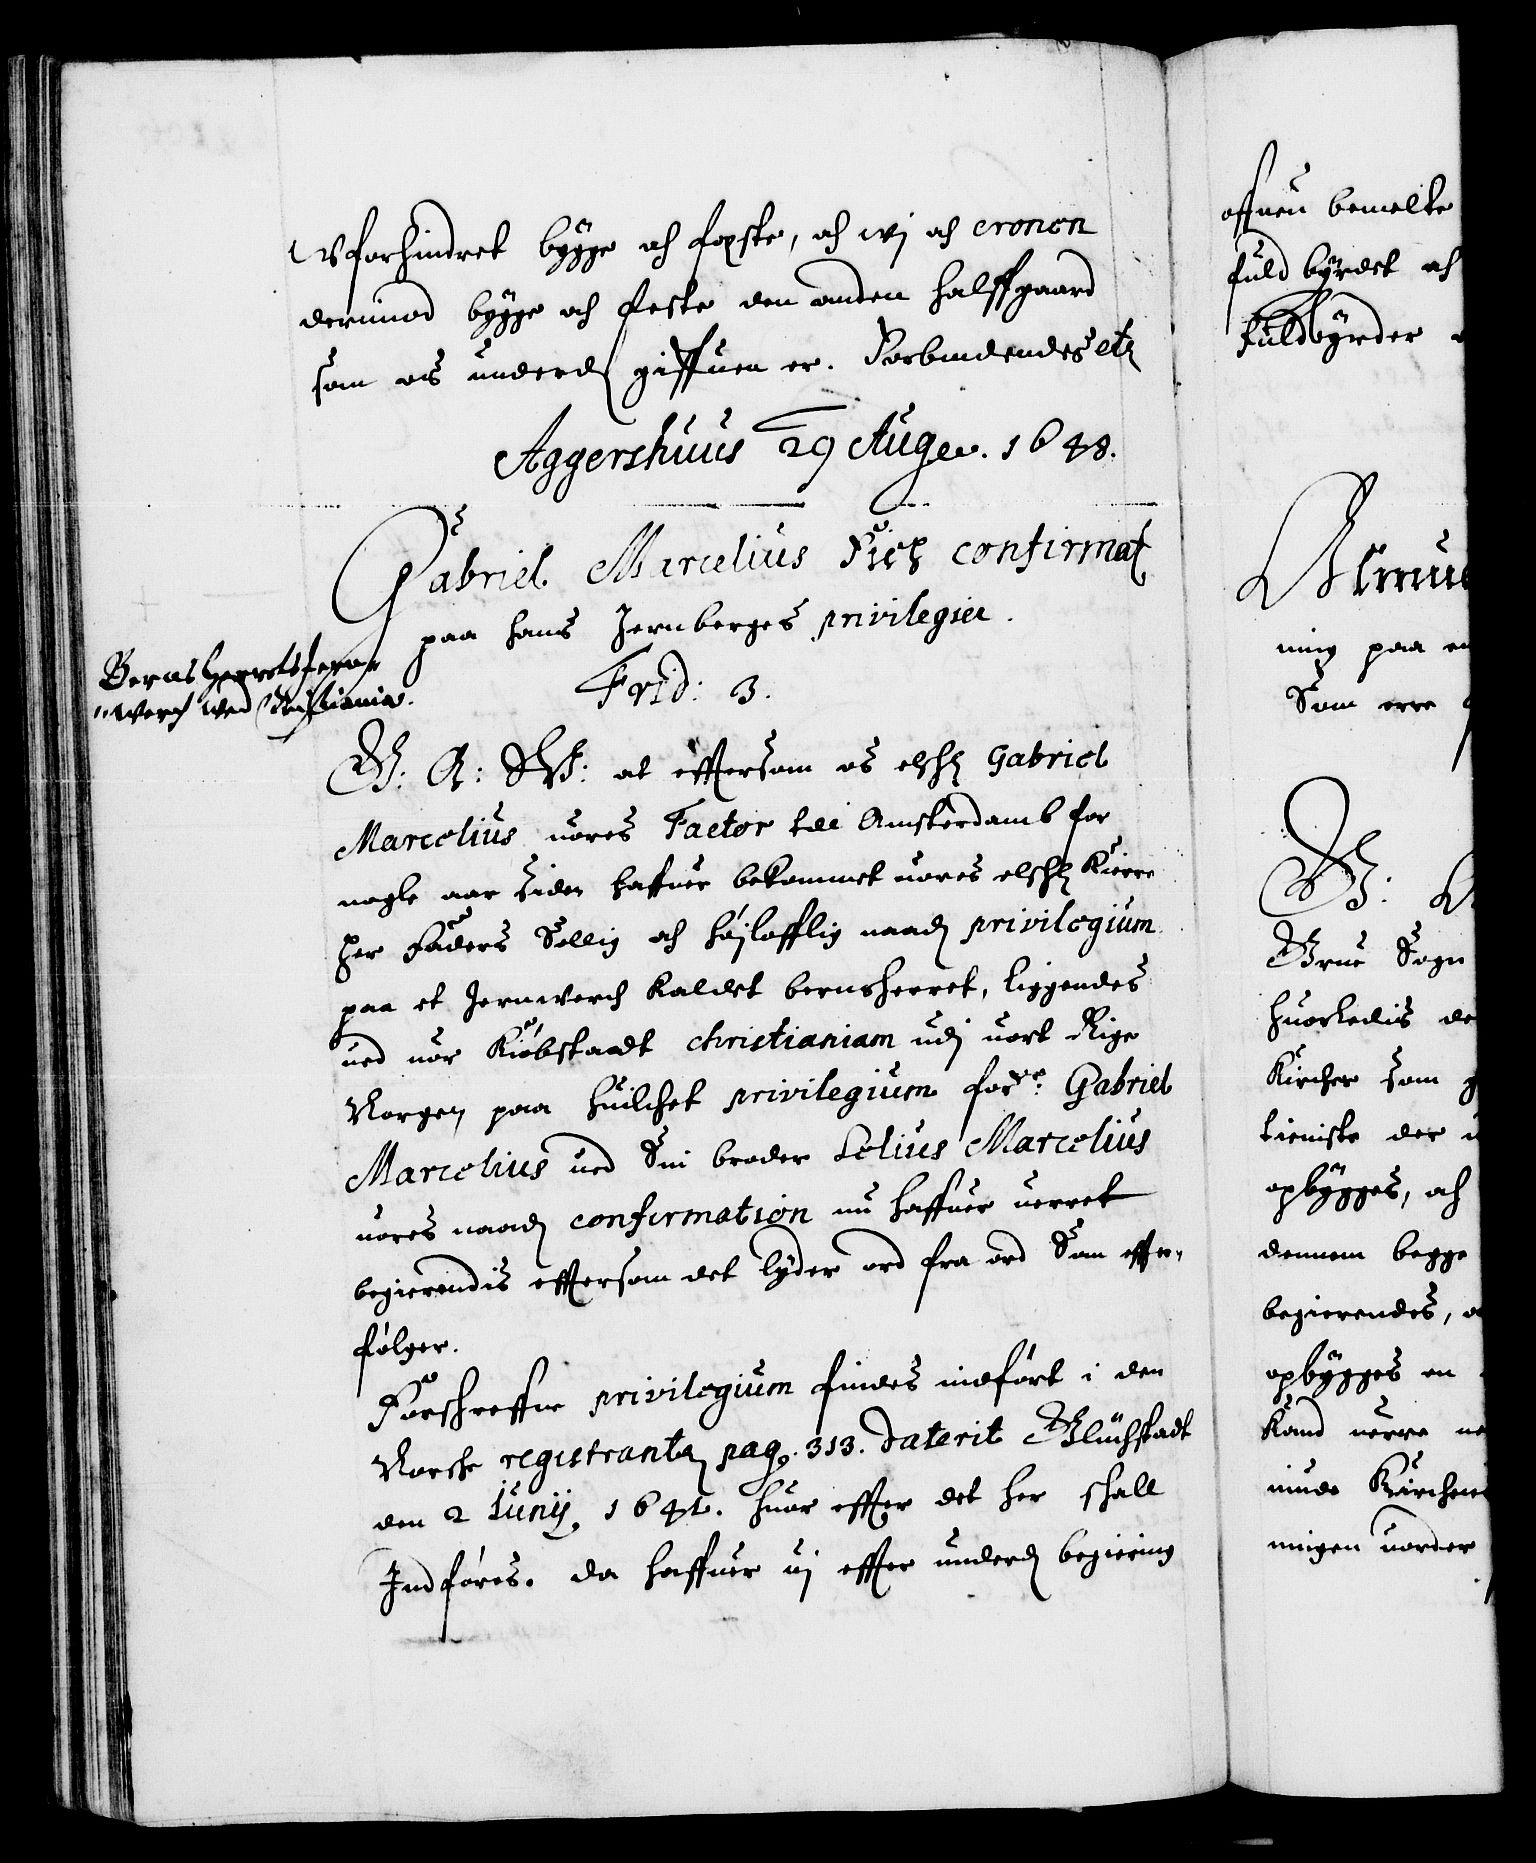 Uforhindret bygge och feste, och vj och cronen
derimod bygge och feste den anden halffgaard
som os underd: giffuen er. Forbindendes etc
Aggershuus 29 Aug. 1648.
Gabriel Marcelius Fick confirmat:
paa hans Jernberges privilegier.
Bernsherrets Jern-
werch wed Christiania.
Frid: 3.
W: A: G: W: at effterſom os elſkl: Gabriel
Marcelius uores Factor udi Amsterdamb for
nogle aar siden haffuer bekommet uores elschl: Kierre
Her Faders Sellig och højlofflig naad: privilegium
paa et Jernwerch kaldet bernsherret, liggendes
ued uor Kiøbstadt christianiam udj uort Rige
Norge, paa huilchet privilegium forne: Gabriel
Marcelius ued Sin broder Selius Marcelius
uores naad: confirmation nu haffuer uerret
begierendis effterſom det lyder ord fra ord Som effter-
følger.
Forschreffne privilegium findes indført i den
Norsche registrant, pag. 313. daterit Glüchstadt
den 2 Junij 1641. huor effter det her schall
Indføres. da haffuer vj effter underd: begiering
offuen bemelte
fuldbyrdet och
Fuldbyrder
ning paa en
Som erre
W:
Grue Sogn
huorledis de
Kircher som
tieniste der
opbygges, och
dennem begge
begierendes,
opbygges en
Kand uerre
minde Kircher
ningen uorder